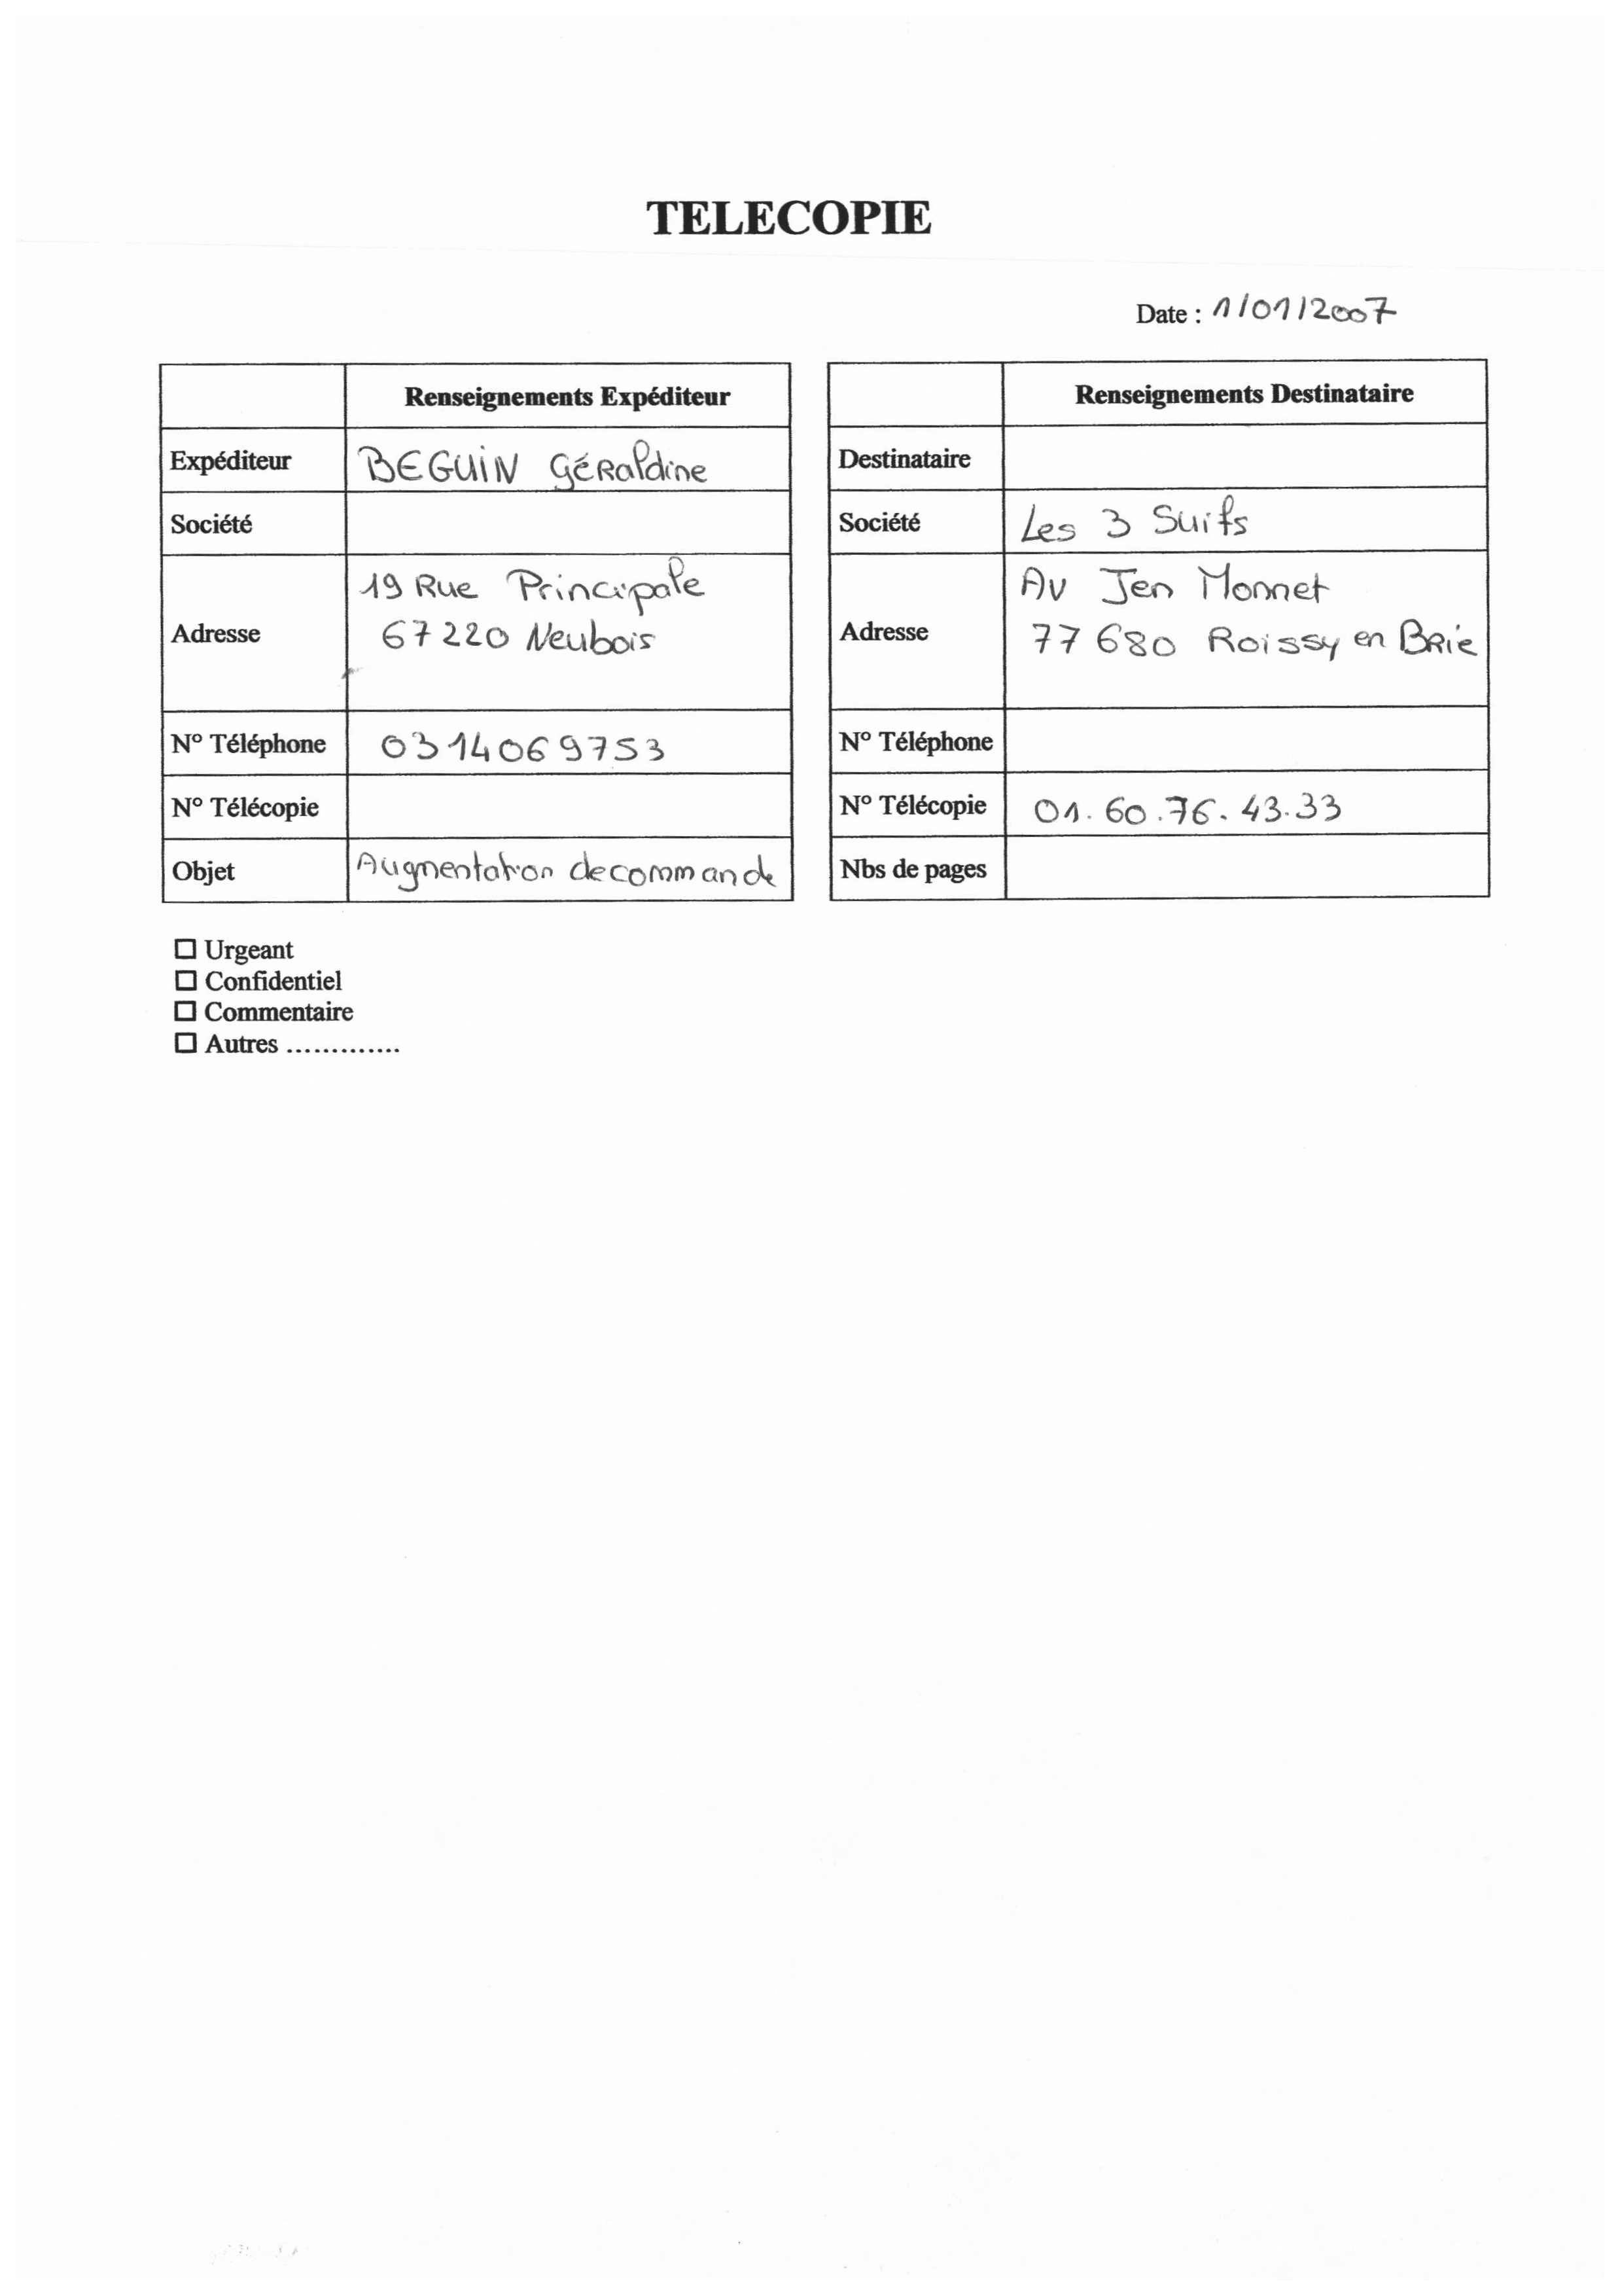 TELECOPIE
Date : 1/01/2007
Renseignements Expéditeur
Expéditeur BEGUIN Géraldine
Société
Adresse 19 Rue Principale
67220 Neubois
N° Téléphone 0314069753
N° Télécopie
Objet Augmentation de commande
Renseignements Destinataire
Destinataire
Société Les 3 Suifs
Adresse Av Jen Monnet
77680 Roissy en Brie
N° Téléphone
N° Télécopie 01.60.76.43.33
Nbs de pages
☐ Urgeant
☐ Confidentiel
☐ Commentaire
☐ Autres .............